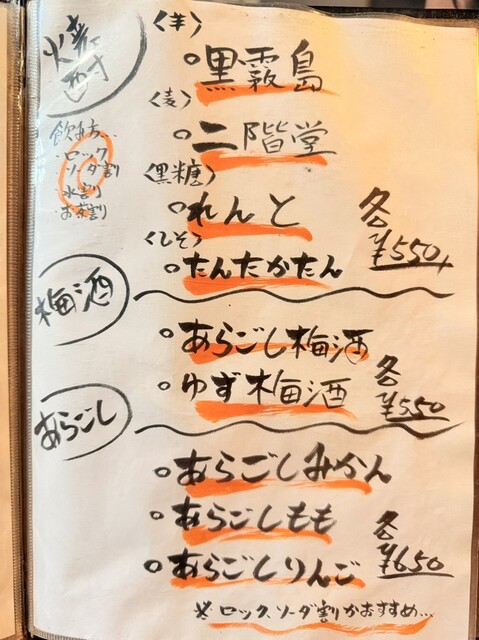 焼酎
飲み方…
・ロック
・ソーダ割
・水割
・お茶割
〈芋〉
○黒霧島
〈麦〉
○二階堂
〈黒糖〉
○れんと
〈しそ〉
○たんたかたん
各
¥550
梅酒
○あらごし梅酒
○ゆず梅酒
各
¥550
あらごし
○あらごしみかん
○あらごしもも
○あらごしりんご
各
¥650
※ロック、ソーダ割がおすすめ…